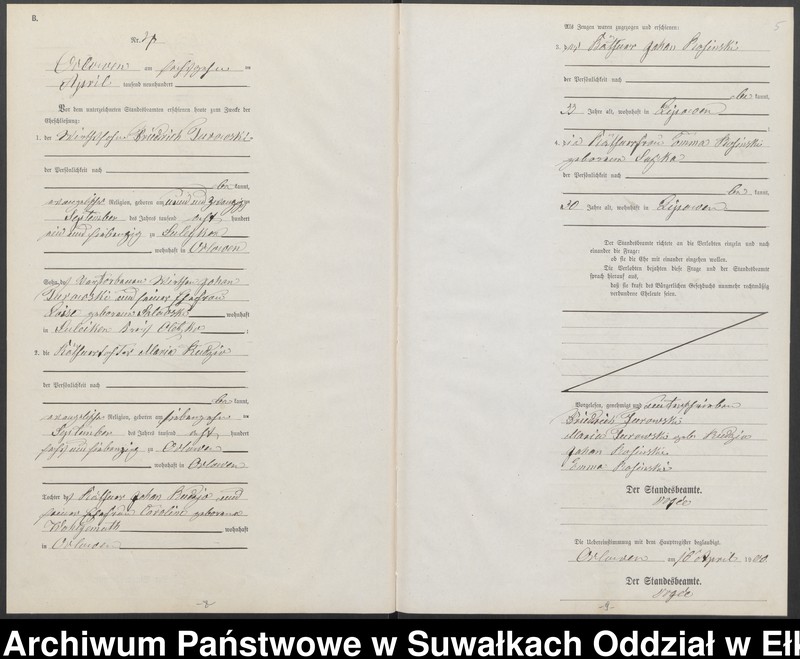 B.
Nr. 27
Orlowen am sechszehnten
April tausend neunhundert
Vor dem unterzeichneten Standesbeamten erschienen heute zum Zwecke der
Eheschließung:
1. der Wirthssohn Friedrich Turowski
der Persönlichkeit nach
be kannt,
evangelischer Religion, geboren am
September des Jahres tausend acht hundert
ein und siebenzig zu Suleyken
wohnhaft in Orlowen
Sohn des verstorbenen Wirthen Johan
Turowski und seiner Ehefrau
Loise geborenen wohnhaft
in Suleiken Kreis Oletzko
2. die Käthnertochter Maria Kudzio
der Persönlichkeit nach
be kannt,
evangelischer Religion, geboren am siebenzehnten
September des Jahres tausend acht hundert
sechs und siebenzig zu Orlowen
wohnhaft in Orlowen
Tochter des Käthner Johan Kudzio und
seiner Ehefrau Caroline geborene
wohnhaft
in Orlowen
-2-
5
Als Zeugen waren zugezogen und erschienen:
3. der Käthner Johan Rosinski
der Persönlichkeit nach
be kannt,
33 Jahre alt, wohnhaft in Lipowen
4. die Käthnerfrau Emma Rosinski
geborene
der Persönlichkeit nach
be kannt,
30 Jahre alt, wohnhaft in Lipowen
Der Standesbeamte richtete an die Verlobten einzeln und nach
einander die Frage:
ob sie die Ehe mit einander eingehen wollen.
Die Verlobten bejahten diese Frage und der Standesbeamte
sprach hierauf aus,
daß sie kraft des Bürgerlichen Gesetzbuchs nunmehr rechtmäßig
verbundene Eheleute seien.
Vorgelesen, genehmigt und unterschrieben
Friedrich Turowski
Maria Turowski geb. Kudzio
Johan Rosinski
Emma Rosinski
Der Standesbeamte.
Die Uebereinstimmung mit dem Hauptregister beglaubigt.
Orlowen am 16 April 1900
Der Standesbeamte.
-3-
Archiwum Państwowe w Suwałkach Oddział w Ełk